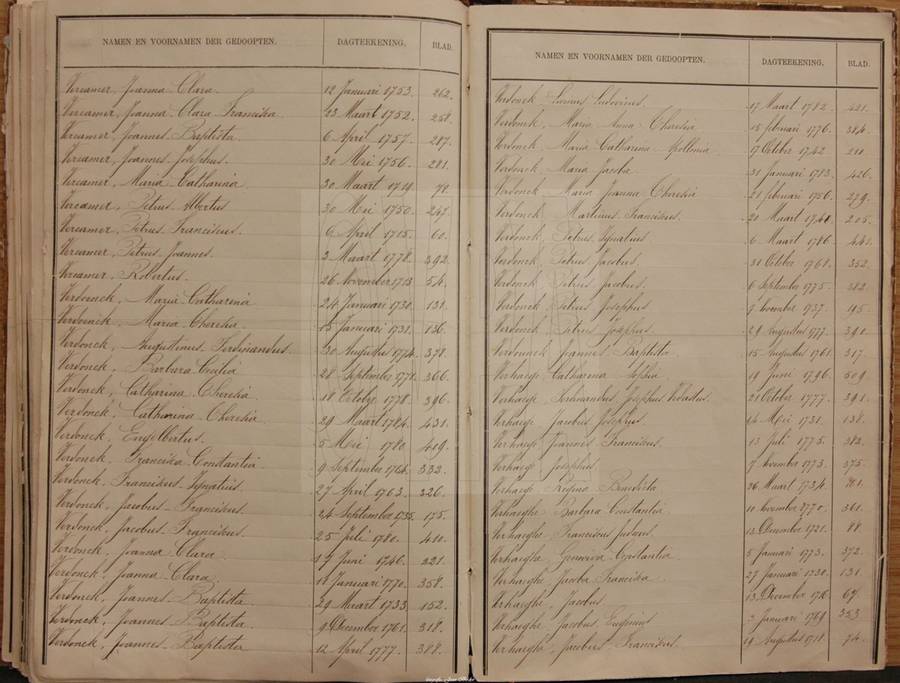 NAMEN EN VOORNAMEN DER GEDOOPTEN. DAGTEEKENING. BLAD.
Vereamer, Joanna Clara. 12 Januari 1753. 262.
Vereamer, Joanna Clara Francisca 23 Maart 1752. 258.
Vereamer, Joannes Baptista 6 April 1757. 287.
Vereamer, Joannes Josephus. 30 Mei 1756. 281.
Vereamer, Maria Catharina 30 Maart 78.
Vereamer, Petrus Albertus 30 Mei 1750. 247.
Vereamer, Petrus Franciscus. 6 April 1715. 60.
Vereamer, Petrus Joannes. 3 Maart 1778. 392.
Vereamer, Robertus. 26 November 1713 54.
Verdonck, Maria Catharina 24 Januari 1730. 131.
Verdonck, Maria Theresia. 15 Januari 1731. 136.
Verdonck, Augustinus Ferdinandus. 30 Augustus 1774. 378.
Verdonck, Barbara Cecilia 28 September 1771. 366.
Verdonck, Catharina Theresia 18 October 1778. 396.
Verdonck, Catharina Theresia 29 Maart 1784. 431.
Verdonck, Engelbertus. 5 Mei 1780. 409.
Verdonck, Francisca Constantia 9 September 1764. 332.
Verdonck, Franciscus Ignatius. 27 April 1763. 326.
Verdonck, Jacobus Franciscus. 24 September 1735. 175.
Verdonck, Jacobus Franciscus. 25 Juli 1780. 410.
Verdonck, Joanna Clara. 17 Juni 1746. 221.
Verdonck, Joanna Clara. 11 Januari 1770. 358.
Verdonck, Joannes Baptista 29 Maart 1733. 152.
Verdonck, Joannes Baptista. 9 December 1761. 318.
Verdonck, Joannes Baptista 12 April 1777. 388.
NAMEN EN VOORNAMEN DER GEDOOPTEN. DAGTEEKENING. BLAD.
Verdonck, Livinus Ludovicus. 17 Maart 1782. 421.
Verdonck, Maria Anna Theresia 15 februari 1776. 384.
Verdonck, Maria Catharina Apollonia. 17 October 1742
Verdonck, Maria Jacoba 31 Januari 1783. 426.
Verdonck, Maria Joanna Theresia 21 februari 1756. 279.
Verdonck, Martinus Franciscus. 20 Maart 1741 205.
Verdonck, Petrus Ignatius 6 Maart 1786. 441.
Verdonck, Petrus Jacobus. 31 October 1768. 352.
Verdonck, Petrus Jacobus. 6 September 1775. 382.
Verdonck, Petrus Josephus 9 November 1737. 195.
Verdonck, Petrus Josephus. 29 Augustus 1777. 390.
Verdonck, Joannes Baptista 15 Augustus 1761. 317.
Verhaege, Catharina Sophia 19 Juni 1796. 509.
Verhaege, Ferdinandus Josephus 21 October 1777. 391.
Verhaege, Jacobus Josephus 14 Mei 1731. 138.
Verhaege, Joannes Franciscus. 13 Juli 1775. 382.
Verhaege, Josephus. 7 November 1773. 375.
Verhaege, Regina Benedicta 26 Maart 1734.
Verhaeghe, Barbara Constantia 10 November 1770. 361.
Verhaeghe, Franciscus Judocus. 13 December 1721. 88.
Verhaeghe, Genoveva Constantia 5 Januari 1773. 372.
Verhaeghe, Jacoba Francisca 27 Januari 1730. 131.
Verhaeghe, Jacobus. 13 December 1716 67.
Verhaeghe, Jacobus Eugenius 2 Januari 1769 353
Verhaeghe, Jacobus Franciscus. 19 Augustus 1718. 74.